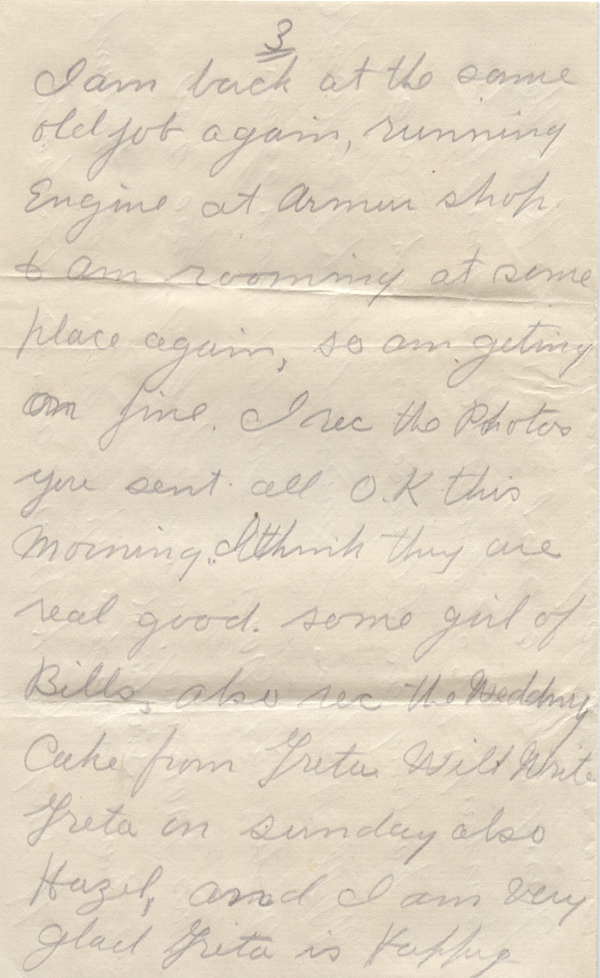 3
I am back at the same
old job again, running
Engine at Armur shop.
& am rooming at same
place again, so am geting
on fine. I rec the Photos
you sent all O.K this
morning. I think they are
real good. some girl of
Bills, also rec the Wedding
Cake from Greta. Will Write
Greta on sunday also
Hazel, and I am very
glad Greta is Happy